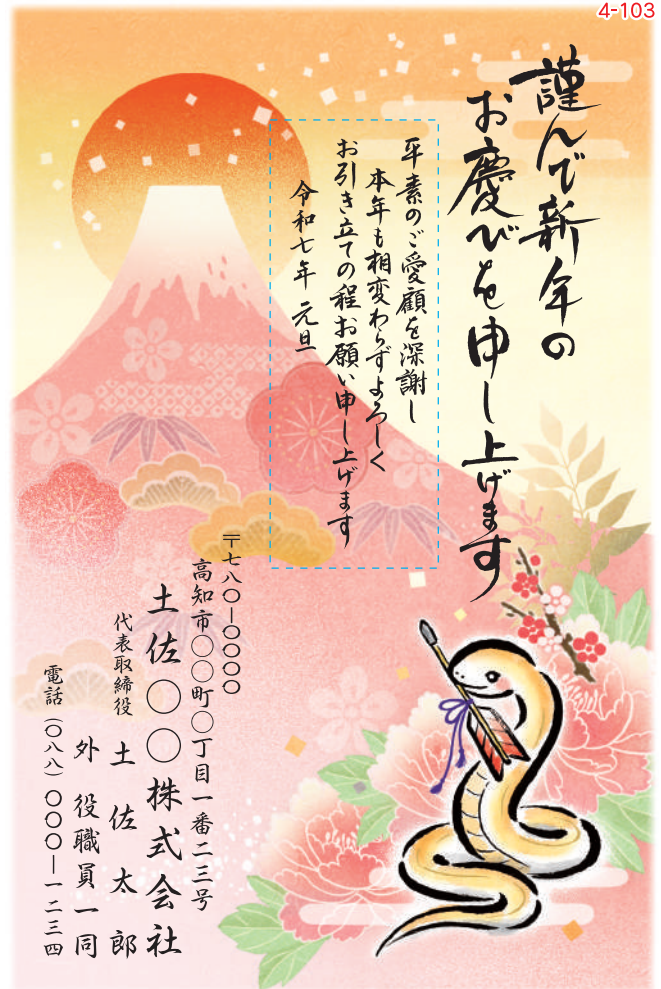 4-103
謹んで新年の
お慶びを申し上げます
平素のご愛顧を深謝し
本年も相変わらずよろしく
お引き立ての程お願い申し上げます
令和七年 元旦
〒七八〇―〇〇〇〇
高知市〇〇町〇丁目一番二三号
土佐〇〇株式会社
代表取締役 土佐太郎
外 役職員一同
電話(〇八八)〇〇〇―一二三四